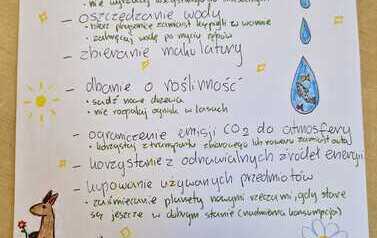 - oszczędzanie wody
• bierz prysznic zamiast kąpieli w wannie
• zakręcaj wodę po myciu zębów
- zbieranie makulatury
- dbanie o roślinność
• sadź nowe drzewa
• nie rozpalaj ognisk w lasach
- ograniczenie emisji CO2 do atmosfery
• korzystaj z transportu zbiorowego lub roweru zamiast auta
- korzystanie z odnawialnych źródeł energii
- kupowanie używanych przedmiotów
• zaśmiecanie planety nowymi rzeczami, gdy stare
są jeszcze w dobrym stanie (nadmierna konsumpcja)